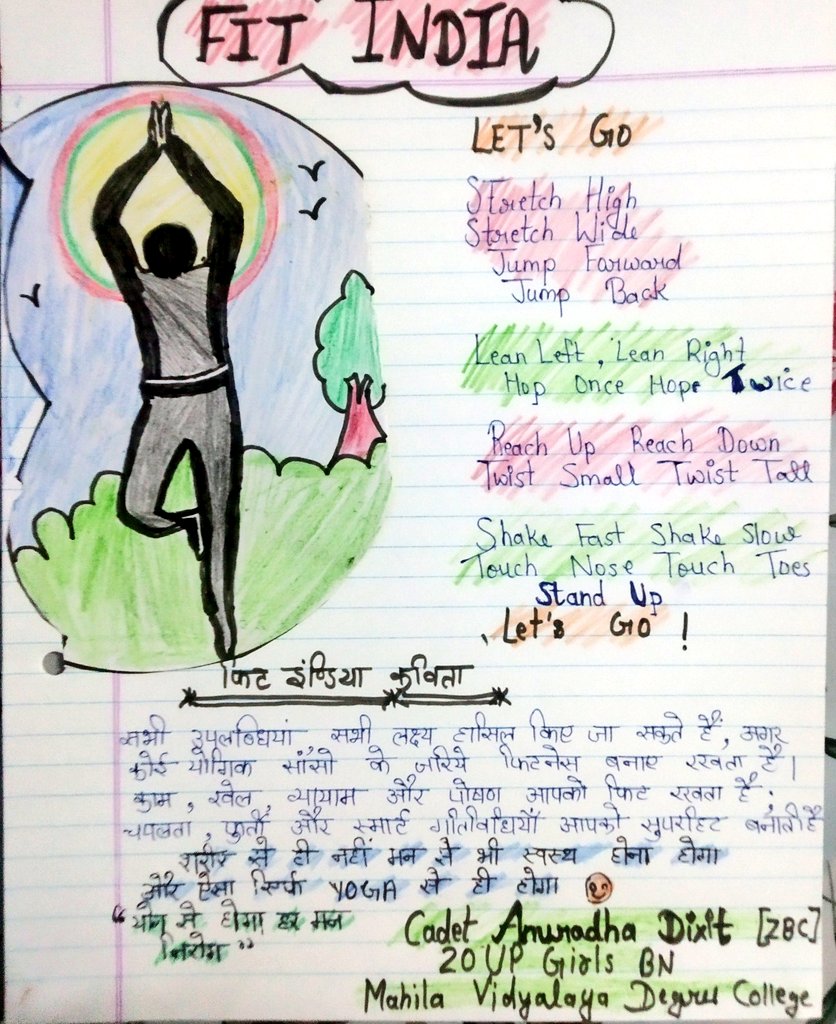 FIT INDIA
LET'S GO
Stretch High
Stretch Wide
Jump Forward
Jump Back
Lean Left, Lean Right
Hop Once Hope Twice
Reach Up Reach Down
Twist Small Twist Tall
Shake Fast Shake Slow
Touch Nose Touch Toes
Stand Up
Let's Go !
फिट इंण्डिया कविता
सभी उपलब्धियां सभी लक्ष्य हासिल किए जा सकते हैं, अगर
कोई योगिक साँसो के जरिये फिटनेस बनाए रखता है।
काम, खेल, व्यायाम और पोषण आपको फिट रखता है।
चपलता, फुर्ती और स्मार्ट गतिविधियाँ आपको सुपरहिट बनाती है
शरीर से ही नहीं मन से भी स्वस्थ होना होगा
और ऐसा सिर्फ YOGA से ही होगा
“योग से होगा हर मन
निरोग”
Cadet Anuradha Dixit [ZBC]
20 UP Girls BN
Mahila Vidyalaya Degree College